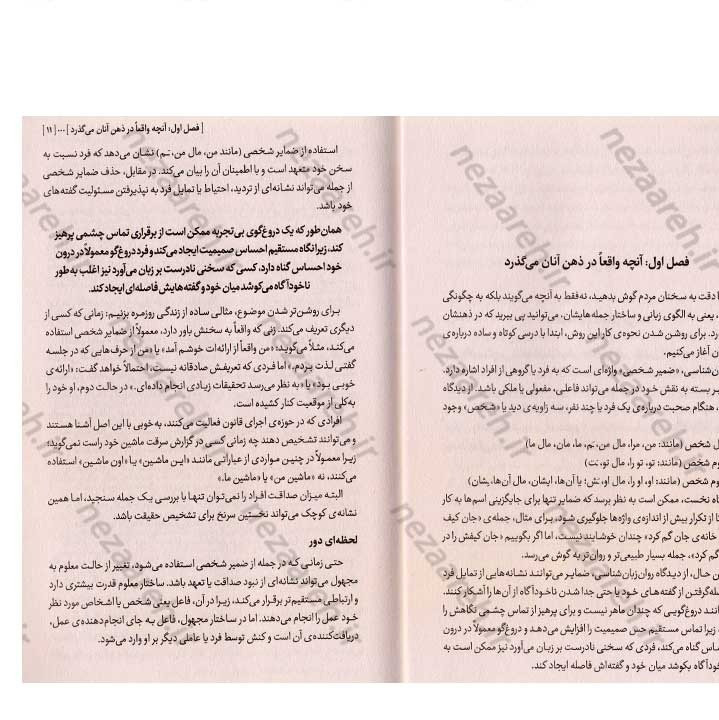 فصل اول: آنچه واقعاً در ذهن آنان می‌گذرد
دقت به سخنان مردم گوش بدهید، نه‌فقط به آنچه می‌گویند بلکه به چگونگی
یعنی به الگوی زبانی و ساختار جمله‌هایشان، می‌توانید پی ببرید که در ذهنشان
برای روشن شدن نحوه‌ی کار این روش، ابتدا با درسی کوتاه و ساده درباره‌ی
آغاز می‌کنیم.
«ضمیر شخصی» واژه‌ای است که به فرد یا گروهی از افراد اشاره دارد.
بسته به نقش خود در جمله می‌تواند فاعلی، مفعولی یا ملکی باشد. از دیدگاه
هنگام صحبت درباره‌ی یک فرد یا چند نفر، سه زاویه‌ی دید یا «شخص» وجود
شخص (مانند: من، مرا، مال من، ـَم، ما، مان، مال ما)
شخص (مانند: تو، تو را، مال تو، ـَت)
شخص (مانند: او، او را، مال او، ـَش؛ یا آن‌ها، ایشان، مال آن‌ها، یشان)
نخست، ممکن است به نظر برسد که ضمایر تنها برای جایگزینی اسم‌ها به کار
از تکرار بیش از اندازه‌ی واژه‌ها جلوگیری شود. برای مثال، جمله‌ی «جان کیف
خانه‌ی جان گم کرد» چندان خوشایند نیست، اما اگر بگوییم «جان کیفش را در
گم کرد»، جمله بسیار طبیعی‌تر و روان‌تر به گوش می‌رسد.
حال، از دیدگاه روان‌زبان‌شناسی، ضمایر می‌توانند نشانه‌هایی از تمایل فرد
گرفتن از گفته‌های خود یا حتی جدا شدن ناخودآگاه از آن‌ها را آشکار کنند.
دروغ‌گویی که چندان ماهر نیست و برای پرهیز از تماس چشمی نگاهش را
زیرا تماس مستقیم حس صمیمیت را افزایش می‌دهد و دروغ‌گو معمولاً در درون
گناه می‌کند، فردی که سخنی نادرست بر زبان می‌آورد نیز ممکن است به
بکوشد میان خود و گفته‌اش فاصله ایجاد کند.
[ فصل اول: آنچه واقعاً در ذهن آنان می‌گذرد ] ... [ ۱۱ ]
استفاده از ضمایر شخصی (مانند من، مال من، ـَم) نشان می‌دهد که فرد نسبت به
سخن خود متعهد است و با اطمینان آن را بیان می‌کند. در مقابل، حذف ضمایر شخصی
از جمله می‌تواند نشانه‌ای از تردید، احتیاط یا تمایل فرد به نپذیرفتن مسئولیت گفته‌های
خود باشد.
همان‌طور که یک دروغ‌گوی بی‌تجربه ممکن است از برقراری تماس چشمی پرهیز
کند، زیرا نگاه مستقیم احساس صمیمیت ایجاد می‌کند و فرد دروغ‌گو معمولاً در درون
خود احساس گناه دارد، کسی که سخنی نادرست بر زبان می‌آورد نیز اغلب به‌طور
ناخودآگاه می‌کوشد میان خود و گفته‌هایش فاصله‌ای ایجاد کند.
برای روشن‌تر شدن موضوع، مثالی ساده از زندگی روزمره بزنیم: زمانی که کسی از
دیگری تعریف می‌کند. زنی که واقعاً به سخنش باور دارد، معمولاً از ضمایر شخصی استفاده
می‌کند، مثلاً می‌گوید: «من واقعاً از ارائه‌ات خوشم آمد» یا «من از حرف‌هایی که در جلسه
گفتی لذت بردم.» اما فردی که تعریفش صادقانه نیست، احتمالاً خواهد گفت: «ارائه‌ی
خوبی بود» یا «به نظر می‌رسد تحقیقات زیادی انجام داده‌ای.» در حالت دوم، او خود را
به‌کلی از موقعیت کنار کشیده است.
افرادی که در حوزه‌ی اجرای قانون فعالیت می‌کنند، به خوبی با این اصل آشنا هستند
و می‌توانند تشخیص دهند چه زمانی کسی در گزارش سرقت ماشین خود راست نمی‌گوید؛
زیرا معمولاً در چنین مواردی از عباراتی مانند «این ماشین» یا «اون ماشین» استفاده
می‌کنند، نه «ماشین من» یا «ماشین ما.»
البته میزان صداقت افراد را نمی‌توان تنها با بررسی یک جمله سنجید، اما همین
نشانه‌ی کوچک می‌تواند نخستین سرنخ برای تشخیص حقیقت باشد.
لحظه‌ای دور
حتی زمانی که در جمله از ضمیر شخصی استفاده می‌شود، تغییر از حالت معلوم به
مجهول می‌تواند نشانه‌ای از نبود صداقت یا تعهد باشد. ساختار معلوم قدرت بیشتری دارد
و ارتباطی مستقیم‌تر برقرار می‌کند، زیرا در آن، فاعل یعنی شخص یا اشخاص مورد نظر
خود عمل را انجام می‌دهند. اما در ساختار مجهول، فاعل به جای انجام‌دهنده‌ی عمل،
دریافت‌کننده‌ی آن است و کنش توسط فرد یا عاملی دیگر بر او وارد می‌شود.
nezaareh.ir